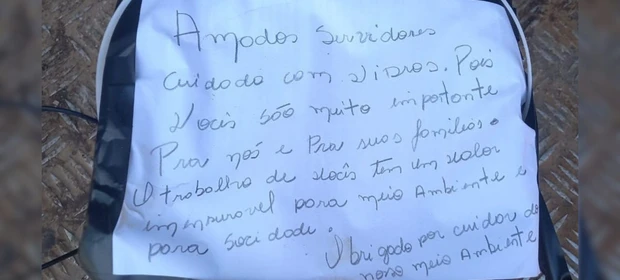 Amados Servidores
cuidado com vidros. Pois
Vocês são muito importante
Pra nós e Pra suas familias.
O trabalho de vocês tem um valor
imensuravel para meio Ambiente e
para socidade.
Obrigado por cuidar do
nosso meio Ambiente